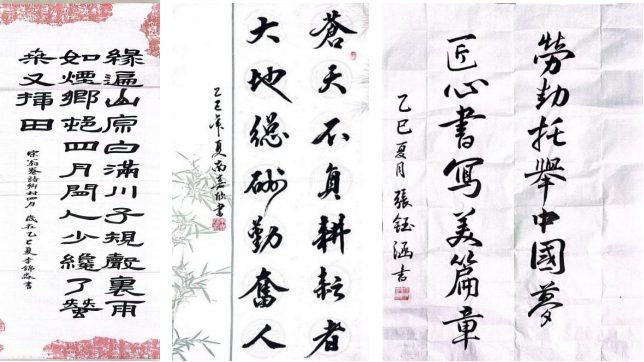 綠遍山原白滿川子規聲裏雨
如煙鄉邨四月閒人少纔了蠶
桑又挿田
宋翁卷詩鄉村四月 歲在乙巳夏李錦書
蒼天不負耕耘者
大地總酬勤奮人
乙巳年夏尚書
勞動托舉中國夢
匠心書寫美篇章
乙巳夏月張鈺涵書